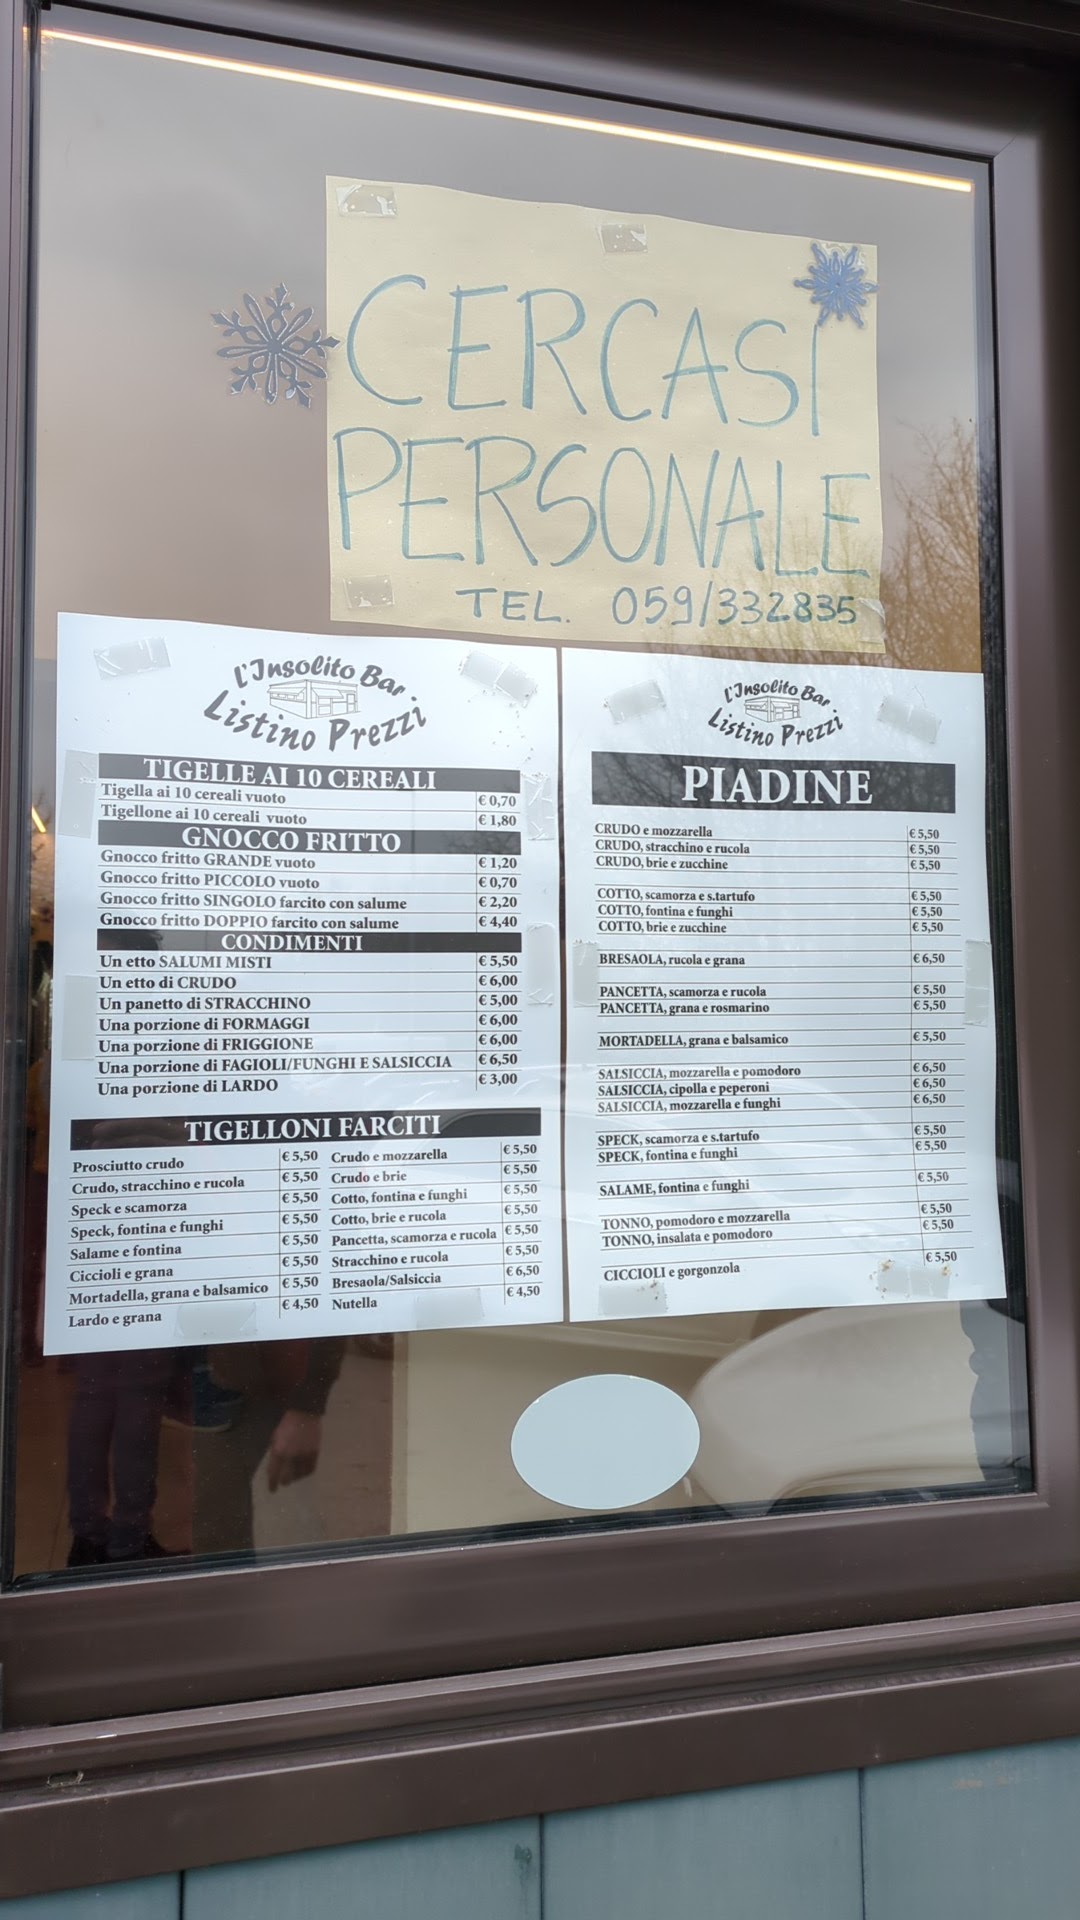 CERCASI
PERSONALE
TEL. 059/332835
L'Insolito Bar
Listino Prezzi
TIGELLE AI 10 CEREALI
Tigella ai 10 cereali vuoto € 0,70
Tigellone ai 10 cereali vuoto € 1,80
GNOCCO FRITTO
Gnocco fritto GRANDE vuoto € 1,20
Gnocco fritto PICCOLO vuoto € 0,70
Gnocco fritto SINGOLO farcito con salume € 2,20
Gnocco fritto DOPPIO farcito con salume € 4,40
CONDIMENTI
Un etto SALUMI MISTI € 5,50
Un etto di CRUDO € 6,00
Un panetto di STRACCHINO € 5,00
Una porzione di FORMAGGI € 6,00
Una porzione di FRIGGIONE € 6,00
Una porzione di FAGIOLI/FUNGHI E SALSICCIA € 6,50
Una porzione di LARDO € 3,00
TIGELLONI FARCITI
Prosciutto crudo € 5,50 Crudo e mozzarella € 5,50
Crudo, stracchino e rucola € 5,50 Crudo e brie € 5,50
Speck e scamorza € 5,50 Cotto, fontina e funghi € 5,50
Speck, fontina e funghi € 5,50 Cotto, brie e rucola € 5,50
Salame e fontina € 5,50 Pancetta, scamorza e rucola € 5,50
Ciccioli e grana € 5,50 Stracchino e rucola € 5,50
Mortadella, grana e balsamico € 5,50 Bresaola/Salsiccia € 6,50
Lardo e grana € 4,50 Nutella € 4,50
L'Insolito Bar
Listino Prezzi
PIADINE
CRUDO e mozzarella € 5,50
CRUDO, stracchino e rucola € 5,50
CRUDO, brie e zucchine € 5,50
COTTO, scamorza e s.tartufo € 5,50
COTTO, fontina e funghi € 5,50
COTTO, brie e zucchine € 5,50
BRESAOLA, rucola e grana € 6,50
PANCETTA, scamorza e rucola € 5,50
PANCETTA, grana e rosmarino € 5,50
MORTADELLA, grana e balsamico € 5,50
SALSICCIA, mozzarella e pomodoro € 6,50
SALSICCIA, cipolla e peperoni € 6,50
SALSICCIA, mozzarella e funghi € 6,50
SPECK, scamorza e s.tartufo € 5,50
SPECK, fontina e funghi € 5,50
SALAME, fontina e funghi € 5,50
TONNO, pomodoro e mozzarella € 5,50
TONNO, insalata e pomodoro € 5,50
CICCIOLI e gorgonzola € 5,50